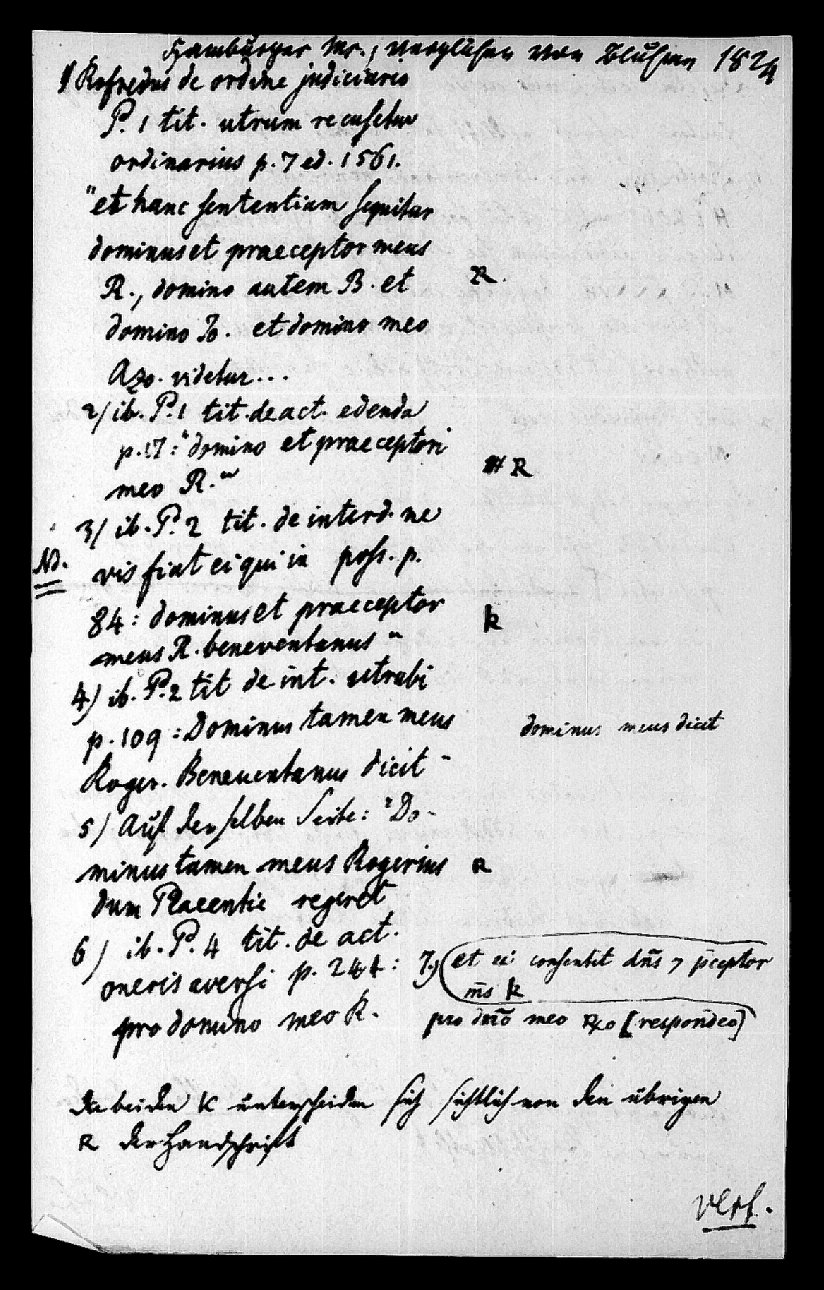 Hamburger Ms., verglichen von Bluhme 1824
1) Rofredus de ordine judiciario
P. 1 tit. utrum recusetur
ordinarius p. 7 ed. 1561.
"et hanc sententiam sequitur
dominus et praeceptor meus
R., domino autem B. et
R.
domino Jo. et domino meo
Azo. videtur...
2) ib. P. 1 tit. de act. edenda
p. 17: "domino et praeceptori
R
meo R."
3) ib. P. 2 tit. de interd. ne
vis fiat ei qui in poss. p.
Nb.
84: dominus et praeceptor
k
meus R. beneventanus"
4) ib. P. 2 tit de int. utrubi
p. 109: Dominus tamen meus
dominus meus dicit
Roger. Beneventanus dicit"
5) Auf derselben Seite: "Do-
minus tamen meus Rogerius
R
dum Placentie regeret
6) ib. P. 4 tit. de act.
oneris aversi p. 244:
7.) et ei consentit dñs 7 p̄ceptor
m̄s k
pro domino meo R.
pro dño meo Ro [respondeo]
die beiden k unterscheiden sich sichtlich von den übrigen
R der Handschrift